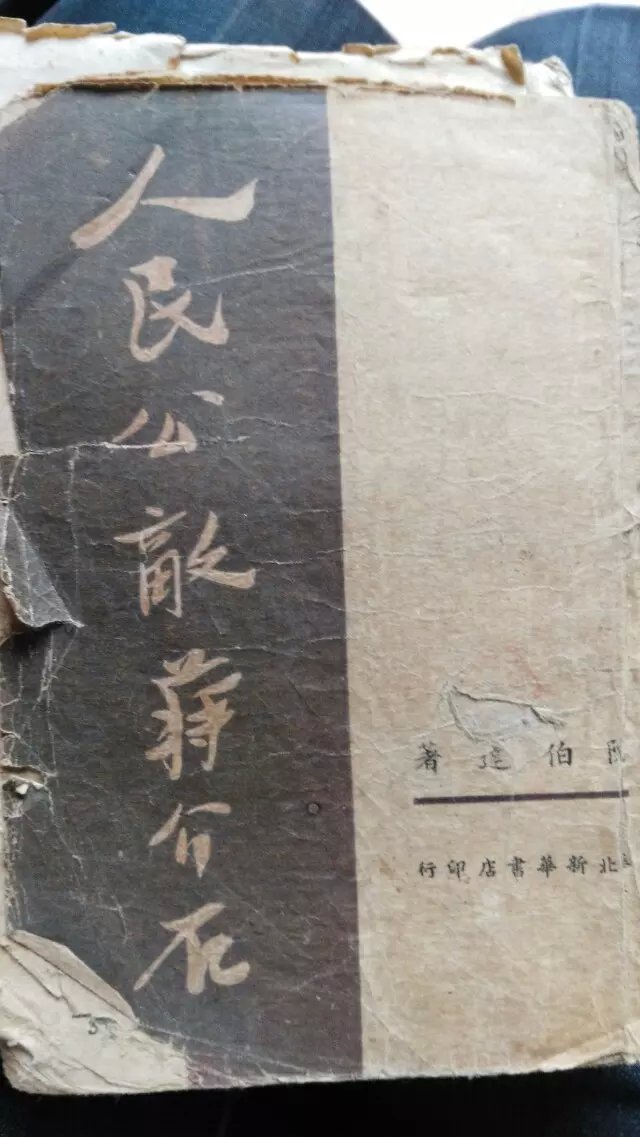 人民公敵蔣介石
伯達著
北新華書店印行